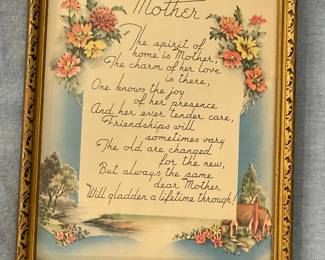 Mother
The spirit of
home is Mother,
The charm of her love
is there,
One knows the joy
of her presence
And her ever tender care,
Friendships will
sometimes vary
The old are changed
for the new,
But always the same
dear Mother
Will gladden a lifetime through!